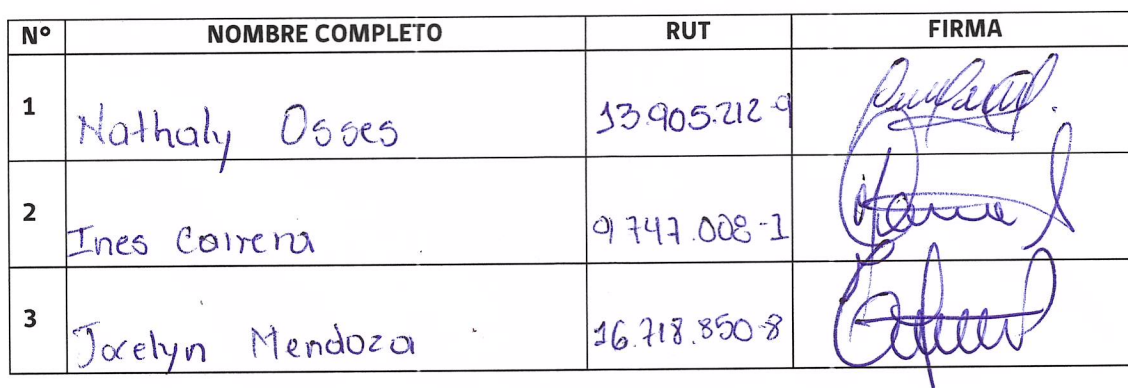 N° NOMBRE COMPLETO RUT FIRMA
1 Nathaly Osses 13.905.212-9
2 Ines Carrera 9.747.008-1
3 Jocelyn Mendoza 16.718.850-8